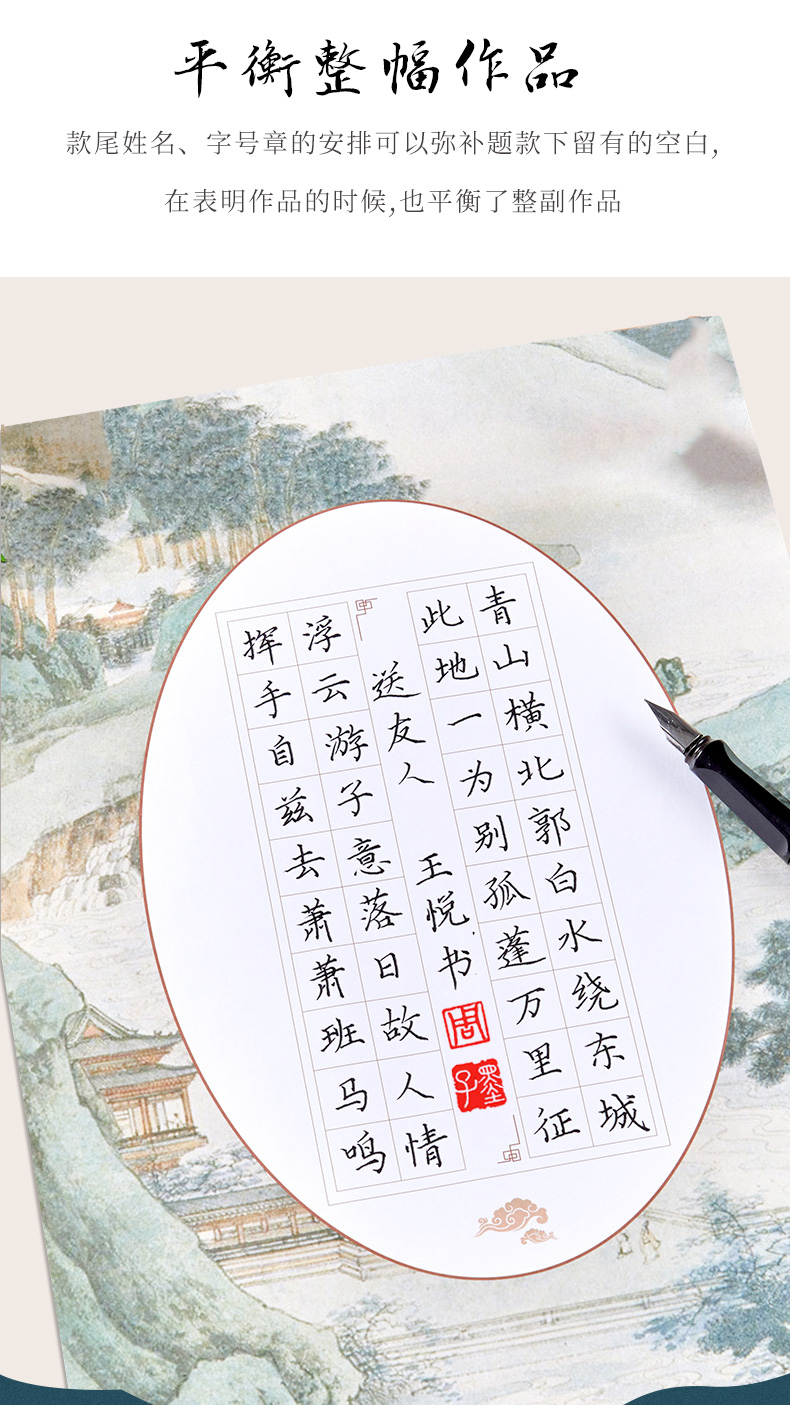 平衡整幅作品
款尾姓名、字号章的安排可以弥补题款下留有的空白,
在表明作品的时候,也平衡了整副作品
青山横北郭白水绕东城
此地一为别孤蓬万里征
送友人 王悦书
周
墨子
浮云游子意落日故人情
挥手自兹去萧萧班马鸣